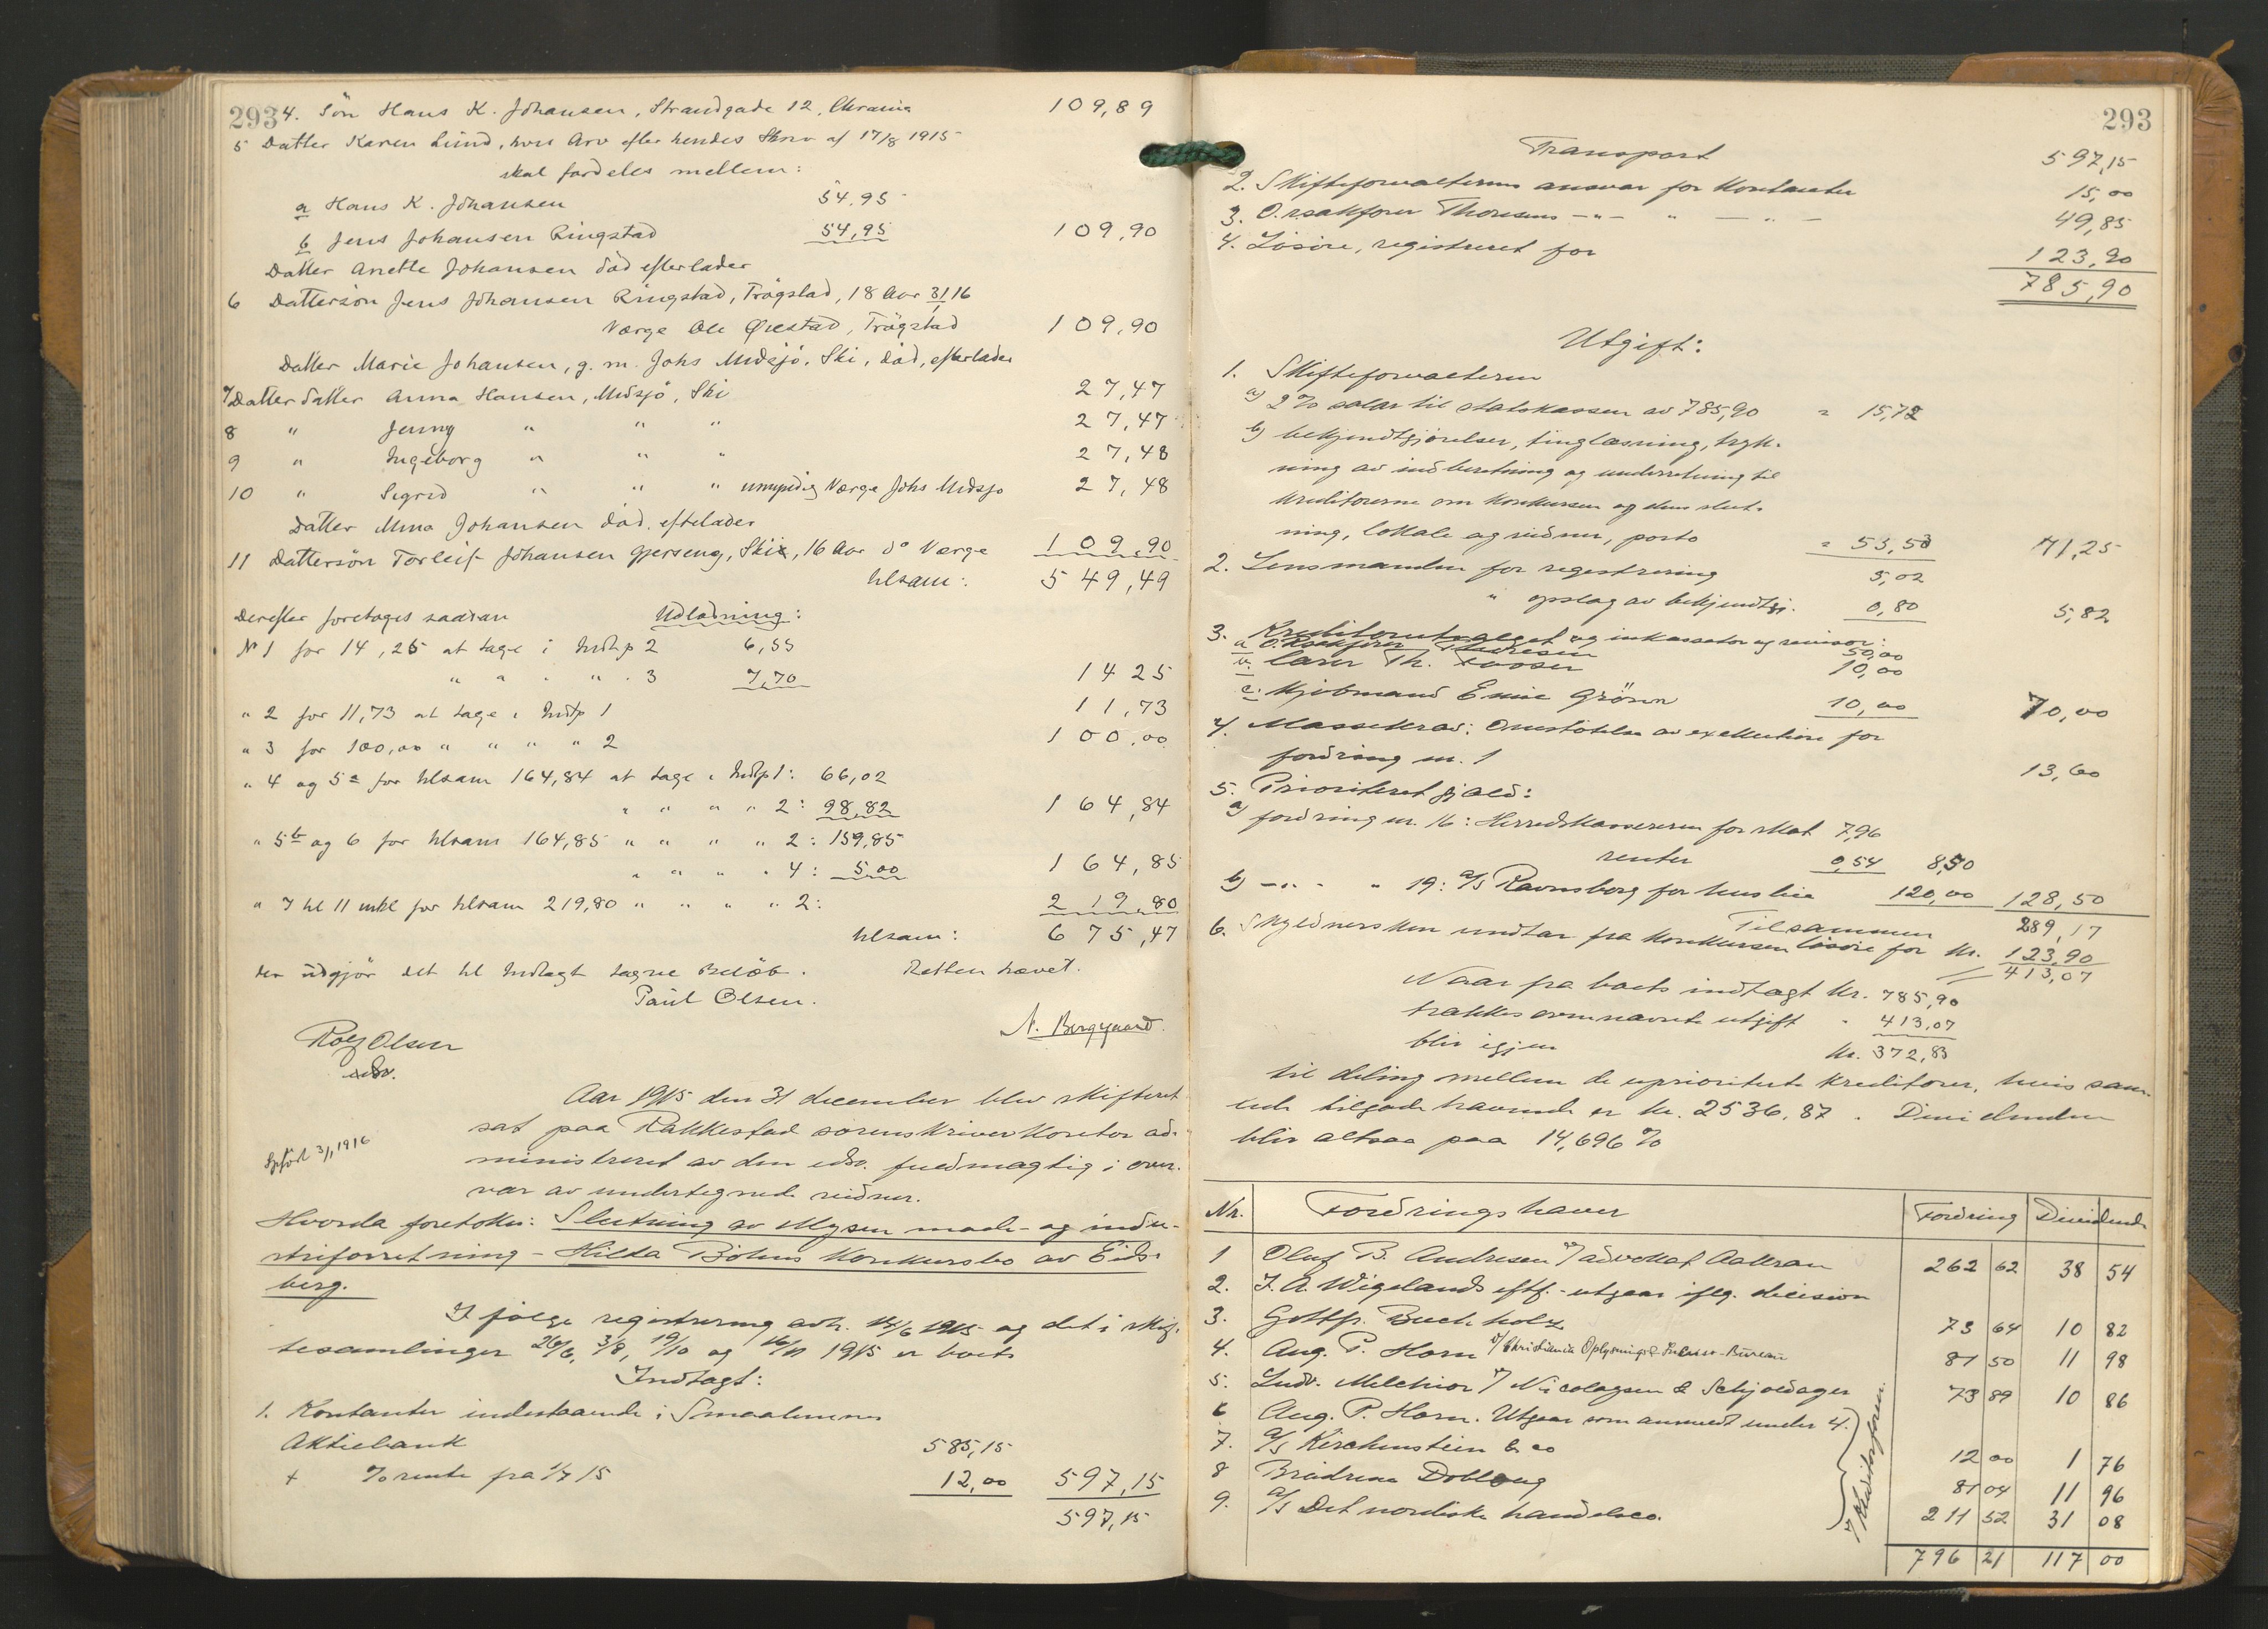 293
4. Sön Hans K. Johansen, Strandgade 12, Chrania 109,89
5 Datter Karen Lund, hvis Arv efter hendes Skriv af 17/8 1915
skal fordeles mellem:
a Hans K. Johansen 54,95
b Jens Johansen Ringstad 54,95 109,90
Datter Anette Johansen död efterlader
6 Dattersön Jens Johansen Ringstad, Trögstad, 18 Aar 3/1 16
Værge Ole Ørestad, Trögstad 109,90
Datter Marie Johansen, g. m. Johs Midsjö, Ski, död, efterlader
7 Datterdatter Anna Hansen, Midsjö, Ski 27,47
8 " Jenny " " " 27,47
9 " Ingeborg " " " 27,48
10 " Sigrid " " " umyndig Værge Johs Midsjö 27,48
Datter Mina Johansen död, efterlader
11 Dattersön Torleif Johansen Gjerseng, Ski, 16 Aar d° Værge 109,90
tilsam: 549,49
Derefter foretages saadan Udlodning:
No 1 for 14,25 at tage i Indtp 2 6,55
" " " " 3 7,70 14 25
" 2 for 11,73 at tage i Indtp 1 11,73
" 3 for 100,00 " " " " 2 100,00
" 4 og 5a for tilsam 164,84 at tage i Indtp 1: 66,02
" " " " 2: 98,82 164,84
" 5b og 6 for tilsam 164,85 " " " " 2: 159,85
" " " " 4: 5,00 164,85
" 7 til 11 inkl for tilsam 219,80 " " " " 2: 219,80
tilsam: 675,47
der udgjör det til Indtægt tagne Belöb. Retten hævet.
Paul Olsen. N. Berggaard.
Rolf Olsen
edsv.
Aar 1915 den 31 december blev skifteret
sat paa Rakkestad sorenskriverkontor ad-
ministreret av den edsv. fuldmægtig i over-
vær av undertegnede vidner.
Opfört 3/1 1916
Hvorda foretokes: Slutning av Mysen mode- og indu-
striforretning - Hilda Böhns konkursbo av Eids-
berg.
I følge registrering avh. 14/6 1915 og det i skif-
tesamlinger 26/6, 3/8, 19/10 og 16/11 1915 er boets
Indtægt:
1. Kontanter indestaaende i Smaalenenes
Aktiebank 585,15
+ % rente fra 1/7 15 12,00 597,15
597,15
293
Transport 597,15
2. Skifteforvalterens ansvar for kontanter 15,00
3. O.rsakfører Thoresens -"- " - " - 49,85
4. Løsøre, registreret for 123,90
785,90
Utgift:
1. Skifteforvalteren
a) 2 % salær til statskassen av 785,90 = 15,72
b) bekjendtgjørelser, tinglæsning, tryk-
ning av indberetning og underretning til
kreditorerne om konkursen og dens slut-
ning, lokale og vidner, porto = 55,53 71,25
2. Lensmanden for registrering 5,02
" opslag av bekjendtgj. 0,80 5,82
3. Kreditorutvalget og inkassator og revisor:
a O.Rsakfører Thoresen 50,00
b. Lærer Th. Fosser 10,00
c. Kjøbmand Emil Grönn 10,00 70,00
4. Massekrav: Omstøtelse av exekution for
fordring nr. 1 13,60
5. Prioritert gjæld:
a) fordring nr. 16: Herredskassereren for skat 7,96
renter 0,54 8,50
b) -"- " 19: A/S Ravnsborg for husleie 120,00 128,50
Tilsammen 289,17
6. Skyldnersken undtar fra konkursen løsøre for kr. 123,90
413,07
Naar fra boets indtægt kr. 785,90
trækkes ovennævnte utgift - 413,07
blir igjen kr. 372,83
til deling mellem de uprioriterte kreditorer, hvis sam-
lede tilgodehavende er kr. 2536,87. Dividenden
blir altsaa paa 14,696 %
Nr. Fordringshaver Fordring Dividende
1 Oluf B. Andresen v/ advokat Aakran 262 62 38 54
2. J. A. Wigelands eftf. - utgaar iflg. decision
3. Gottfr. Buchholz 73 64 10 82
4. Aug. P. Horn v/ Christiania Oplysnings & Inkasso-Bureau 81 50 11 98
5. Ludv. Melchior v/ Nicolaysen & Schjoldager 73 89 10 86
6 Aug. P. Horn. Utgaar som anmeldt under 4.
7. A/S Kirchenstein & co 12 00 1 76
8 Brödrene Dobloug 81 04 11 96
9. A/S Det nordiske handelsco. 211 52 31 08
v/ Kreditorforen.
796 21 117 00